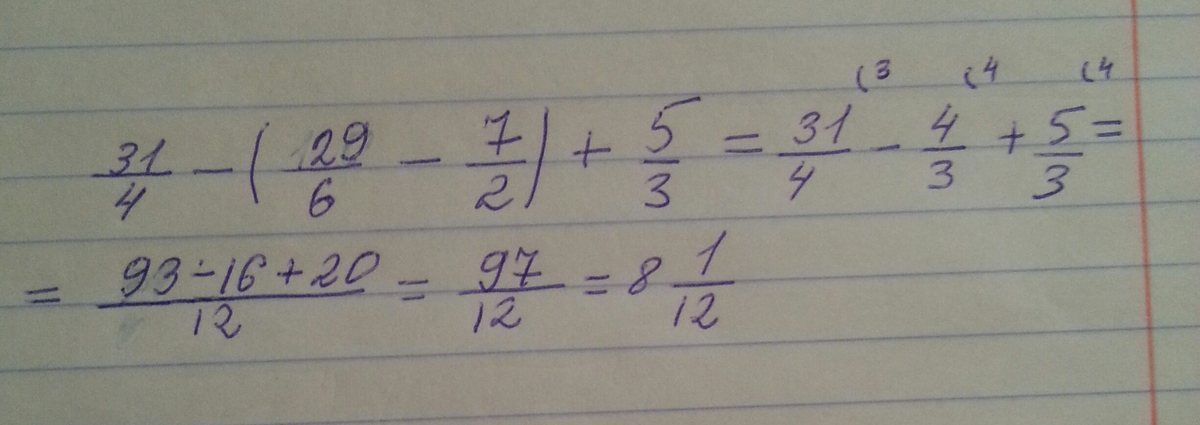 31/4 - (29/6 - 7/2) + 5/3 = 31/4 (3 - 4/3 (4 + 5/3 (4 =
= 93-16+20/12 = 97/12 = 8 1/12